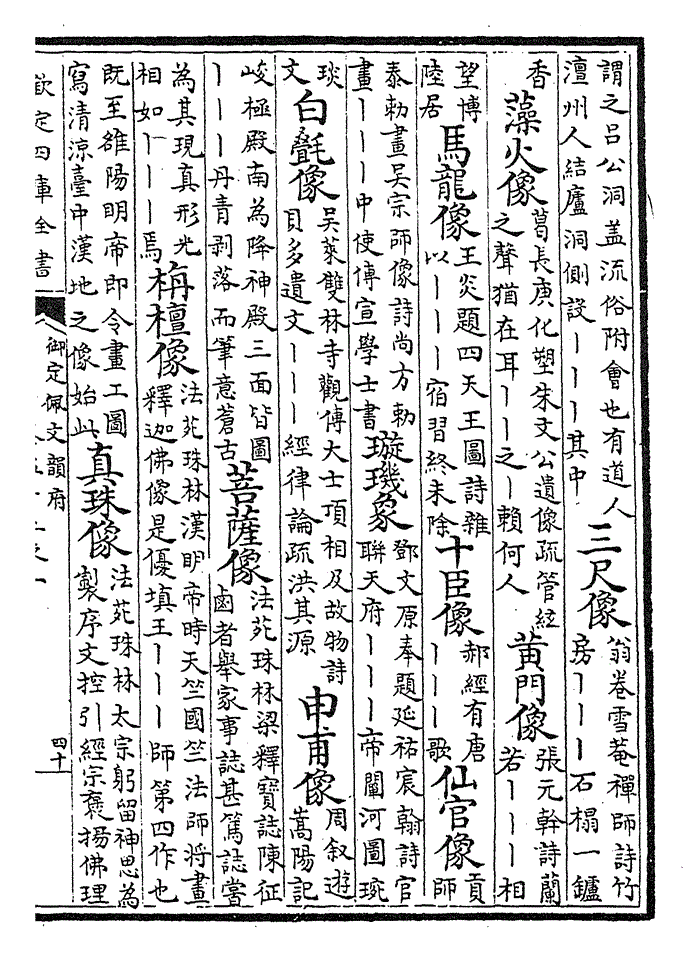 謂之吕公洞盖流俗附會也有道人
澶州人結廬洞側設丨丨丨其中
三尺像
翁卷雪菴禪師詩竹
房丨丨丨石榻一鑪
香
藻火像
葛長庚化塑朱文公遺像疏管絃
之聲猶在耳丨丨之丨賴何人
黄門像
張元幹詩蘭
若丨丨丨相
望博
陸居
馬龍像
王炎題四天王圖詩雜
以丨丨丨宿習終未除
十臣像
郝經有唐
丨丨丨歌
仙官像
貢
師
泰勅畫吳宗師像詩尚方勅
畫丨丨中使傳宣學士書
璇璣象
鄧文原奉題延祐宸翰詩官
聯天府丨丨丨丨帝闡河圖琬
琰
文
白㲲像
吳萊雙林寺觀傳大士項相及故物詩
貝多遺文丨丨丨經律論疏洪其源
申甫像
周叙遊
嵩陽記
峻極殿南為降神殿三面皆圖
丨丨丨丹青剥落而筆意蒼古
菩薩像
法苑珠林梁釋寶誌陳征
鹵者舉家事誌甚篤誌嘗
為其現真形光
相如丨丨丨焉
栴檀像
法苑珠林漢明帝時天竺國竺法師將畫
釋迦佛像是優填王丨丨丨師第四作也
既至雒陽明帝即令畫工圖
寫清涼臺中漢地之像始此
真珠像
法苑珠林太宗躬留神思為
製序文控引經宗褒揚佛理
欽定四庫全書
御定佩文韻府
四十